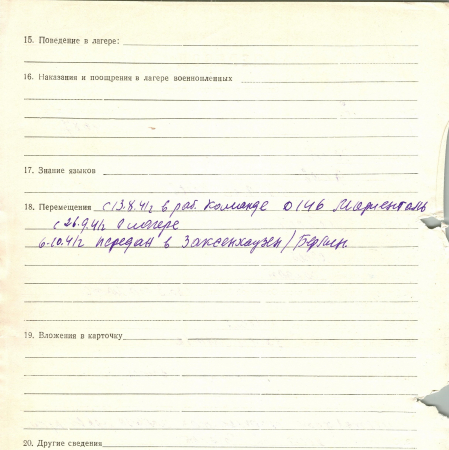 15. Поведение в лагере:
16. Наказания и поощрения в лагере военнопленных
17. Знание языков
18. Перемещения с 13.8.41г в раб. команде 0146 Мариенталь
с 26.9.41г в лагере
6.10.41г передан в Заксенхаузен/Берлин.
19. Вложения в карточку
20. Другие сведения